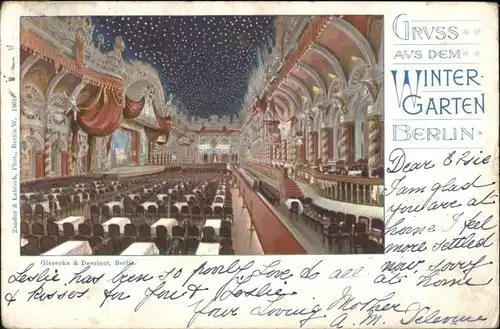 GRUSS
AUS DEM
WINTER-
GARTEN
BERLIN
Zander & Labisch, Phot., Berlin W., 1901.
Giesecke & Devrient, Berlin.
Dear Elsie
I am glad
you are at
home. I feel
more settled
now, sorry
Leslie has been so poorly. Love to all at home
& kisses for you & Leslie
Your Loving Mother
A. M.